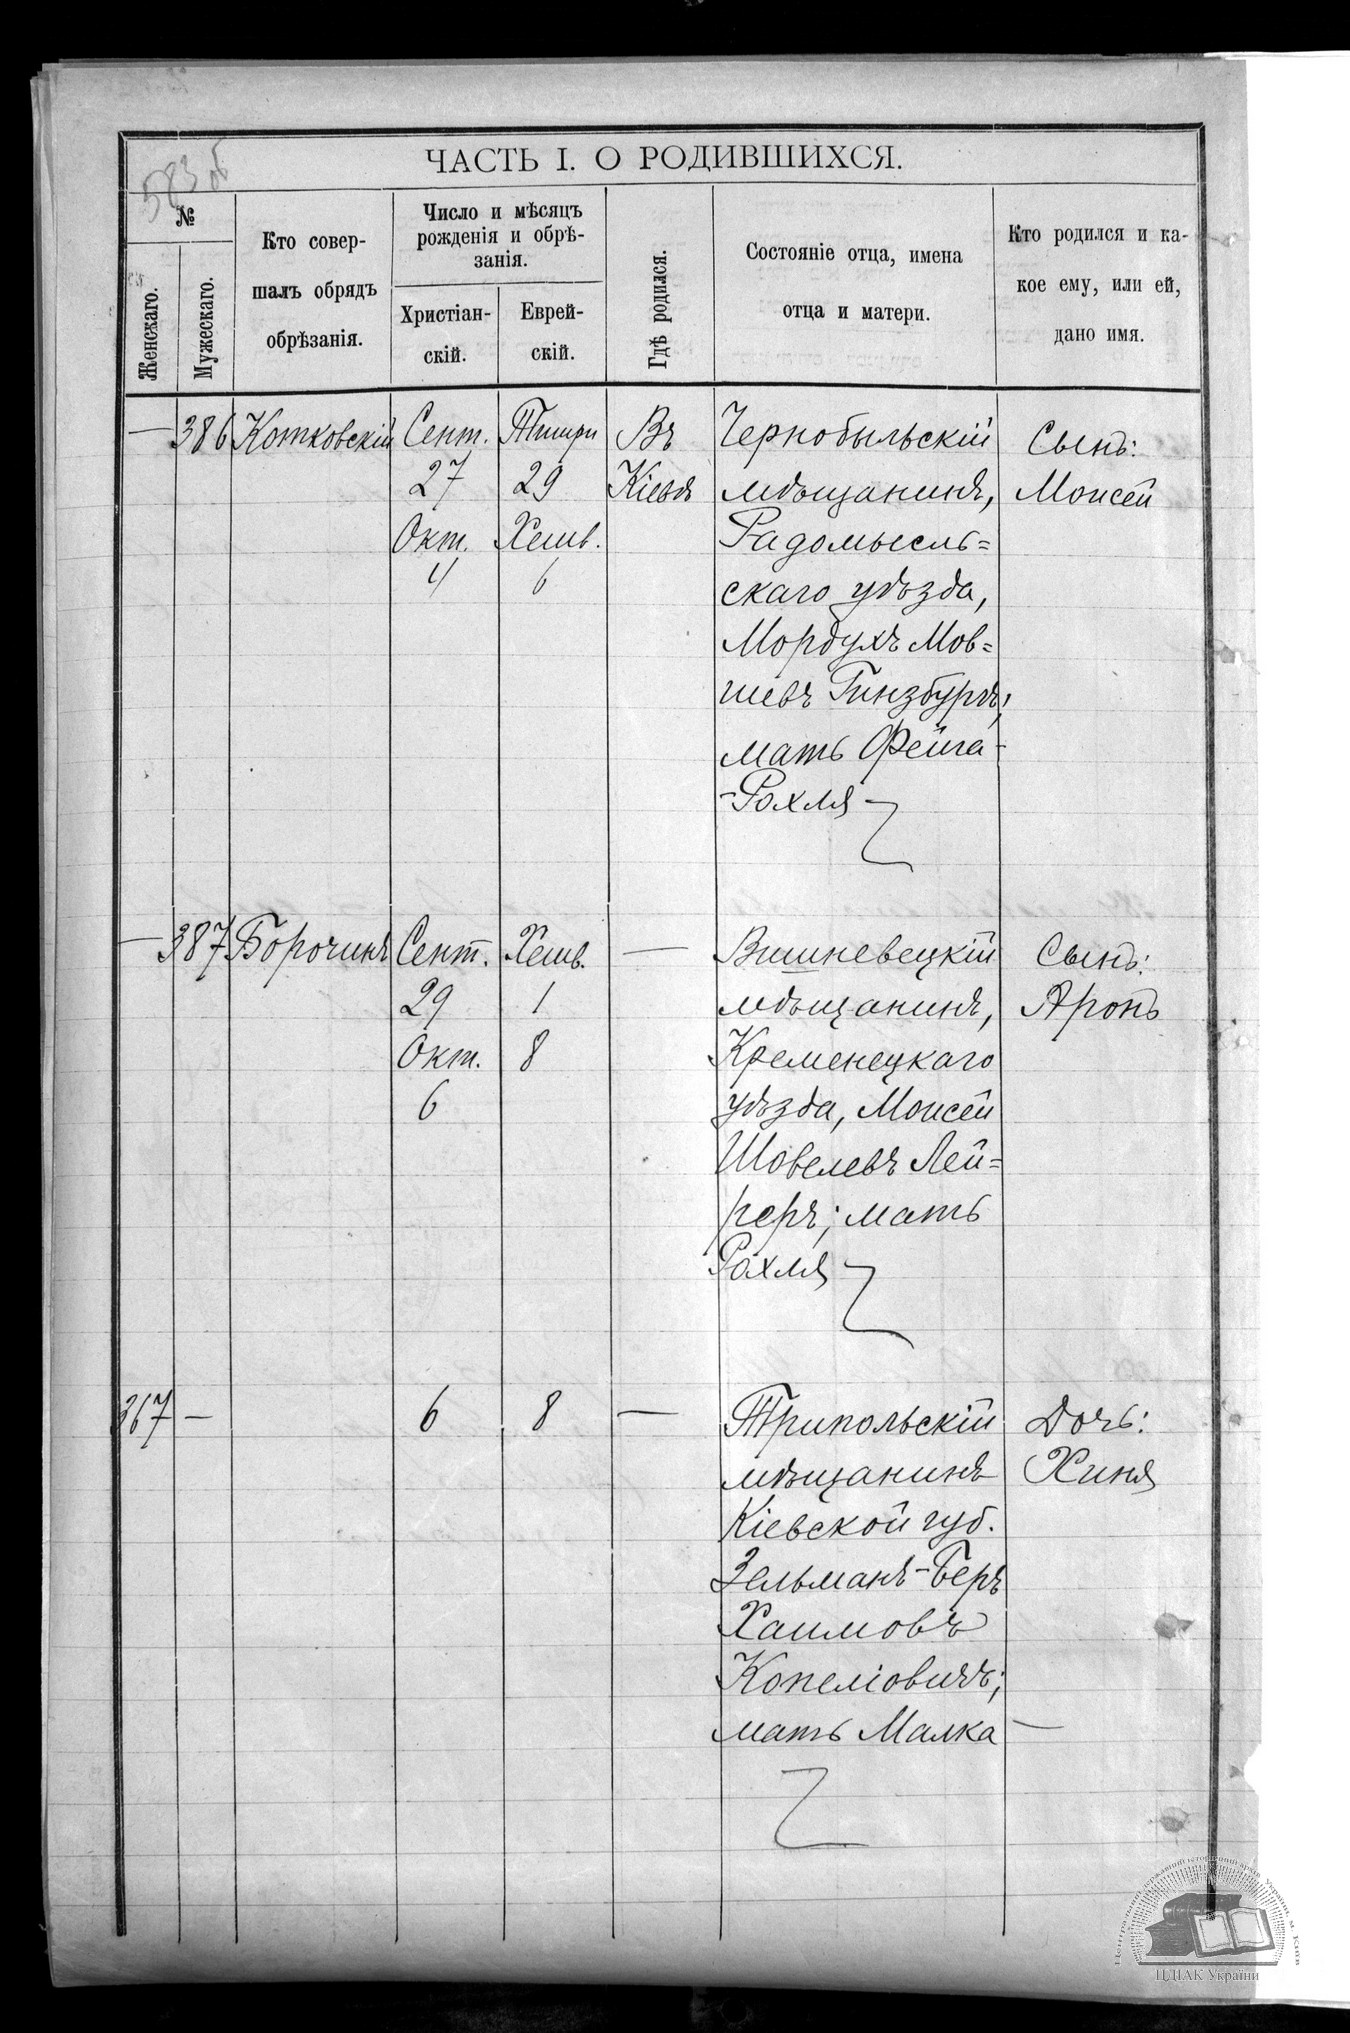 583 об
ЧАСТЬ I. О РОДИВШИХСЯ.
№
Женскаго.
Мужескаго.
Кто совер-
шалъ обрядъ
обрѣзанія.
Число и мѣсяцъ
рожденія и обрѣ-
занія.
Христіан-
скій.
Еврей-
скій.
Гдѣ родился.
Состояніе отца, имена
отца и матери.
Кто родился и ка-
кое ему, или ей,
дано имя.
— 386 Котковскій
Сент.
27
Окт.
4
Тишри
29
Хешв.
6
Въ
Кіевѣ
Чернобыльскій
мѣщанинъ,
Радомысль=
скаго уѣзда,
Мордухъ Мов=
шевъ Гинзбургъ;
мать Фейга-
-Рохля
Сынъ:
Моисей
— 387 Борочинъ
Сент.
29
Окт.
6
Хешв.
1
8
—
Вишневецкій
мѣщанинъ,
Кременецкаго
уѣзда, Моисей
Шовелевъ Лей=
геръ; мать
Рохля
Сынъ:
Аронъ
367 —
6
8
—
Трипольскій
мѣщанинъ
Кіевской губ.
Зельманъ-Беръ
Хаимовъ
Копеліовичъ;
мать Малка —
Дочь:
Хиня
Центральний державний історичний архів України, м. Київ
ЦДІАК України